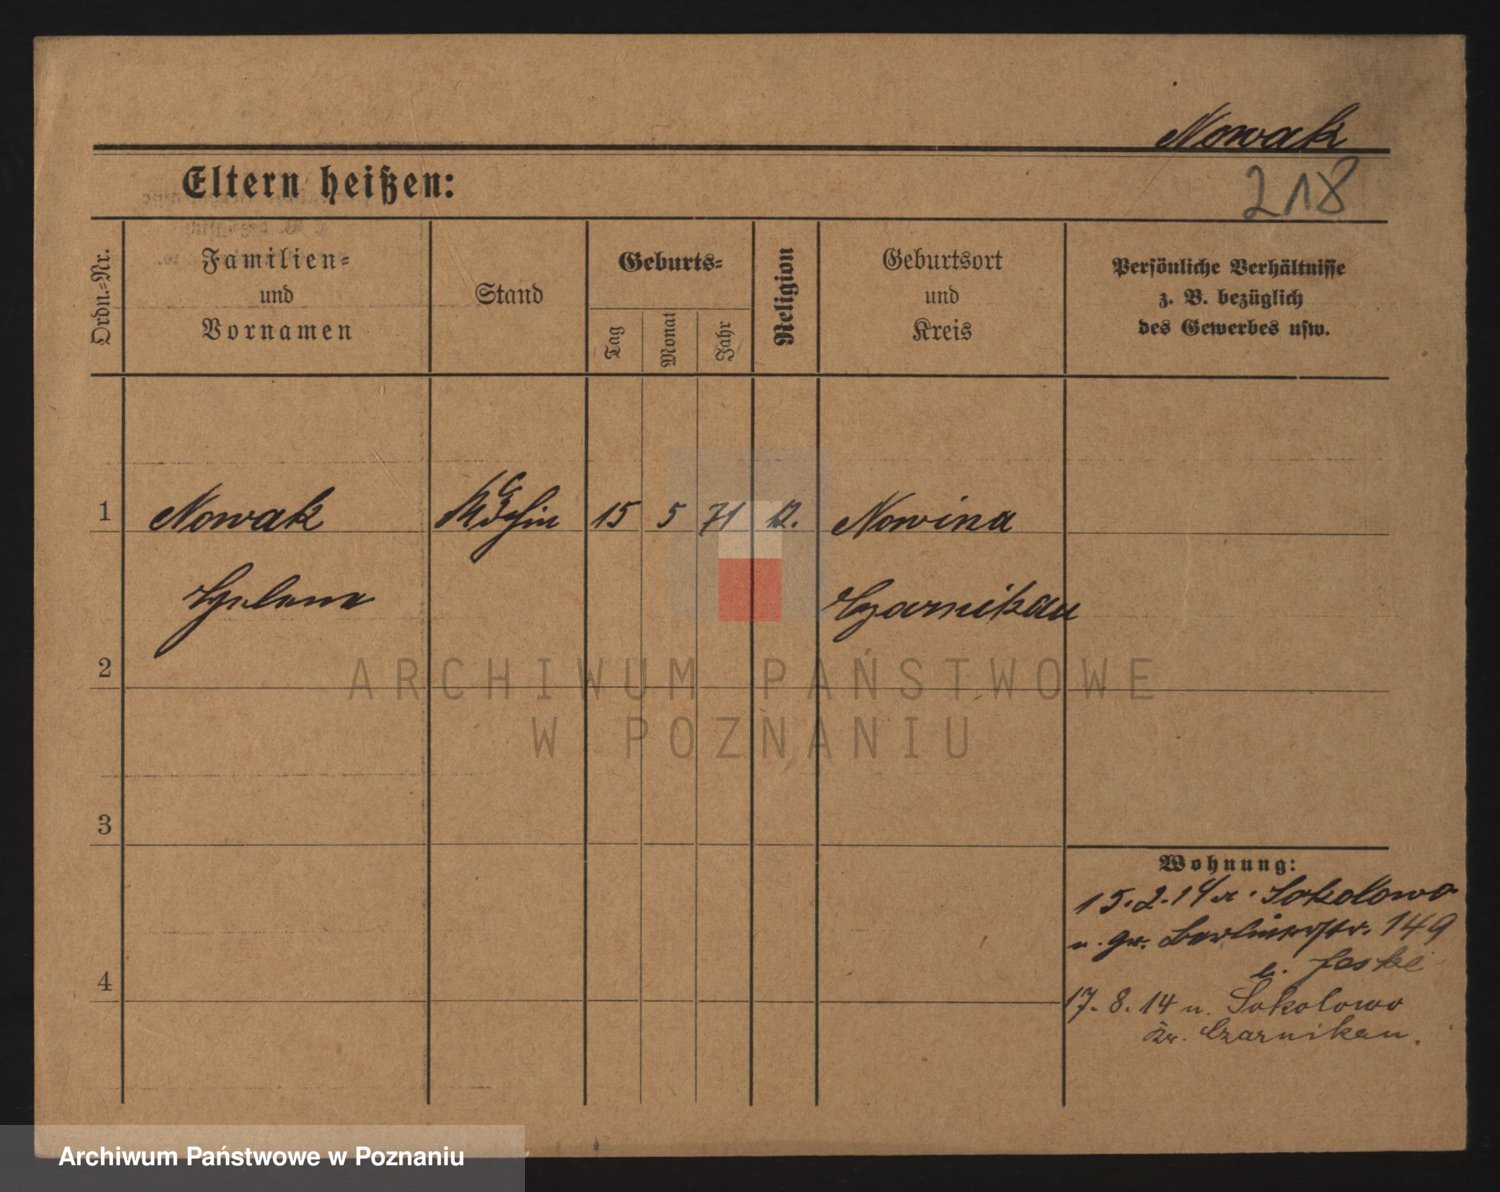 Nowak
Eltern heißen:
218
Ordn.-Nr.
Familien-
und
Vornamen
Stand
Geburts-
Tag
Monat
Jahr
Religion
Geburtsort
und
Kreis
Persönliche Verhältnisse
z. B. bezüglich
des Gewerbes usw.
1 Nowak 15 5 71 Nowina
Helene Czarnikau
2
ARCHIWUM PAŃSTWOWE
W POZNANIU
3
Wohnung:
15.2.14 Sokolowo
n. gr. Berlinerstr. 149
b. Jeske
4
17.8.14 n. Sokolowo
Kr. Czarnikau.
Archiwum Państwowe w Poznaniu